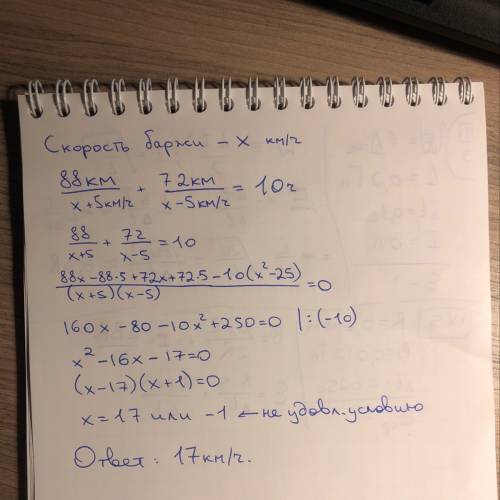 Скорость баржи – х км/ч
88км/х+5км/ч + 72км/х-5км/ч = 10ч
88/х+5 + 72/х-5 = 10
88х-88·5+72х+72·5-10(х²-25)/(х+5)(х-5) = 0
160х - 80 - 10х² + 250 = 0 |:(-10)
х² - 16х - 17 = 0
(х-17)(х+1) = 0
х = 17 или -1 ← не удовл. условию
Ответ: 17км/ч.